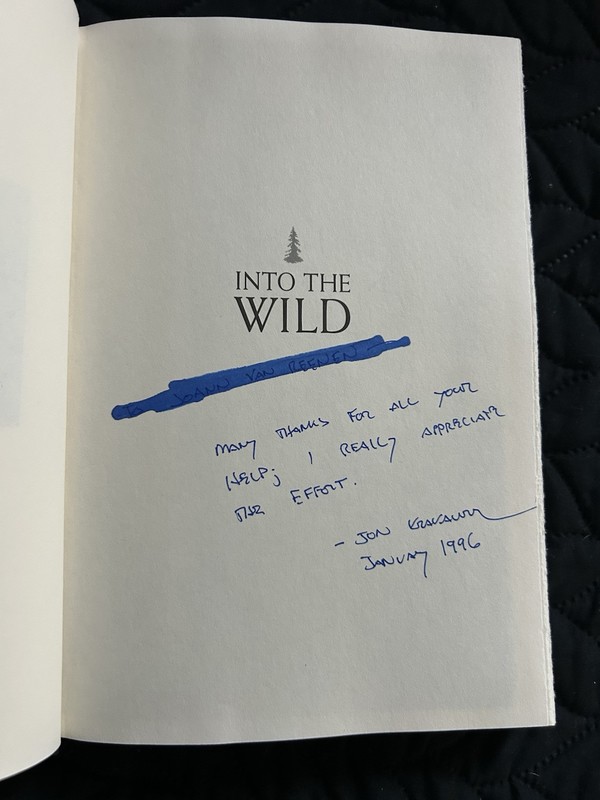 INTO THE
WILD
MANY THANKS FOR ALL YOUR
HELP; I REALLY APPRECIATE
THE EFFORT.
- JON KRAKAUER
JANUARY 1996